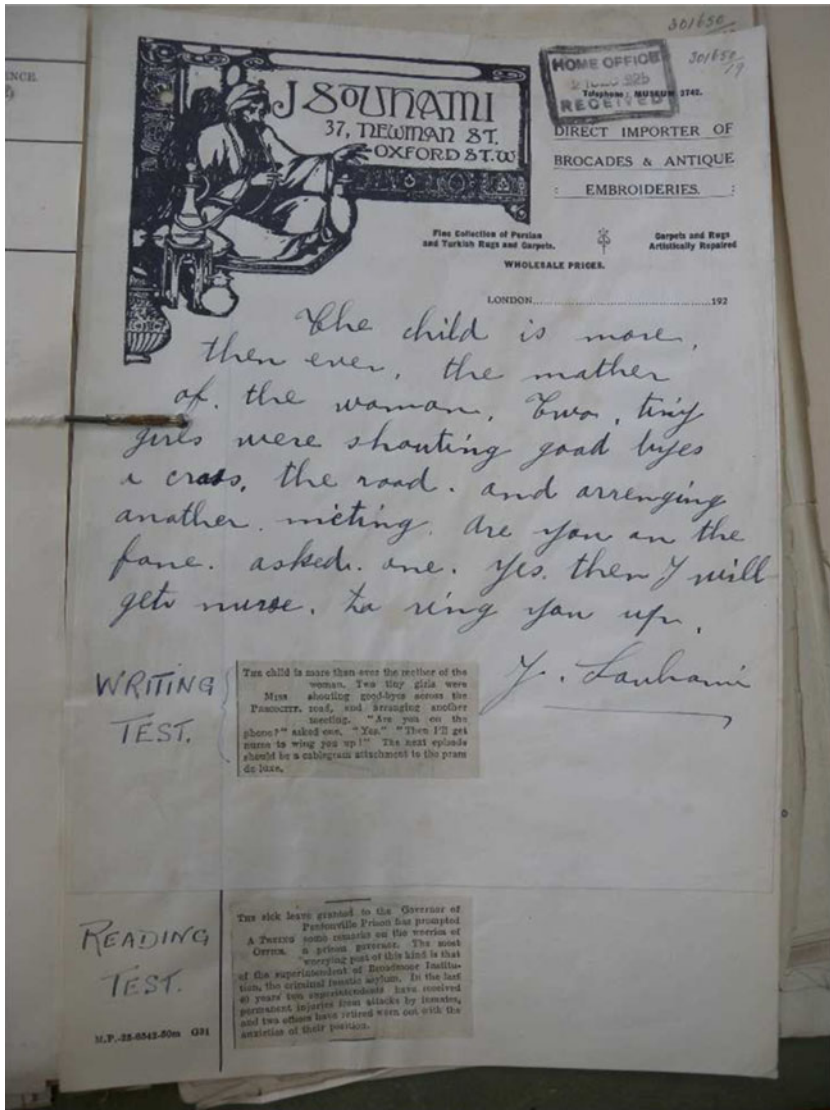 301650
301650/19
ENCE.
HOME OFFICE
RECEIVED
Telephone: MUSEUM 2742.
J SOUHAMI
37, NEWMAN ST.
OXFORD ST. W
DIRECT IMPORTER OF
BROCADES & ANTIQUE
: EMBROIDERIES. :
Fine Collection of Persian
and Turkish Rugs and Carpets.
Carpets and Rugs
Artistically Repaired
WHOLESALE PRICES.
LONDON 192
The child is more,
then ever, the mather
of. the woman, Two, tiny
girls were shouting good byes
a cross, the road. and arrenging
another. miting. are you on the
fone. asked. one. yes. then I will
get nurse. to ring you up.
J. Souhami
WRITING
TEST.
THE child is more than ever the mother of the
woman. Two tiny girls were
MISS shouting good-byes across the
PRECOCITY. road, and arranging another
meeting. "Are you on the
phone?" asked one. "Yes." "Then I'll get
nurse to wing you up!" The next episode
should be a cablegram attachment to the pram
de luxe.
READING
TEST.
THE sick leave granted to the Governor of
Pentonville Prison has prompted
A some remarks on the worries of
OFFICE. a prison governor. The most
worrying post of this kind is that
of the superintendent of Broadmoor Institu-
tion, the criminal lunatic asylum. In the last
40 years two superintendents have received
permanent injuries from attacks by inmates,
and two others have retired worn out with the
anxieties of their position.
M.P.-25-6542-50m G31